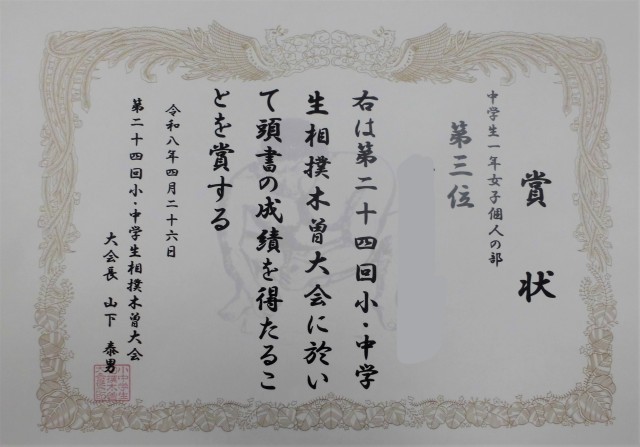 賞状
中学生一年女子個人の部
第三位
右は第二十四回小・中学
生相撲木曽大会に於い
て頭書の成績を得たるこ
とを賞する
令和八年四月二十六日
第二十四回小・中学生相撲木曽大会
大会長 山下 泰男